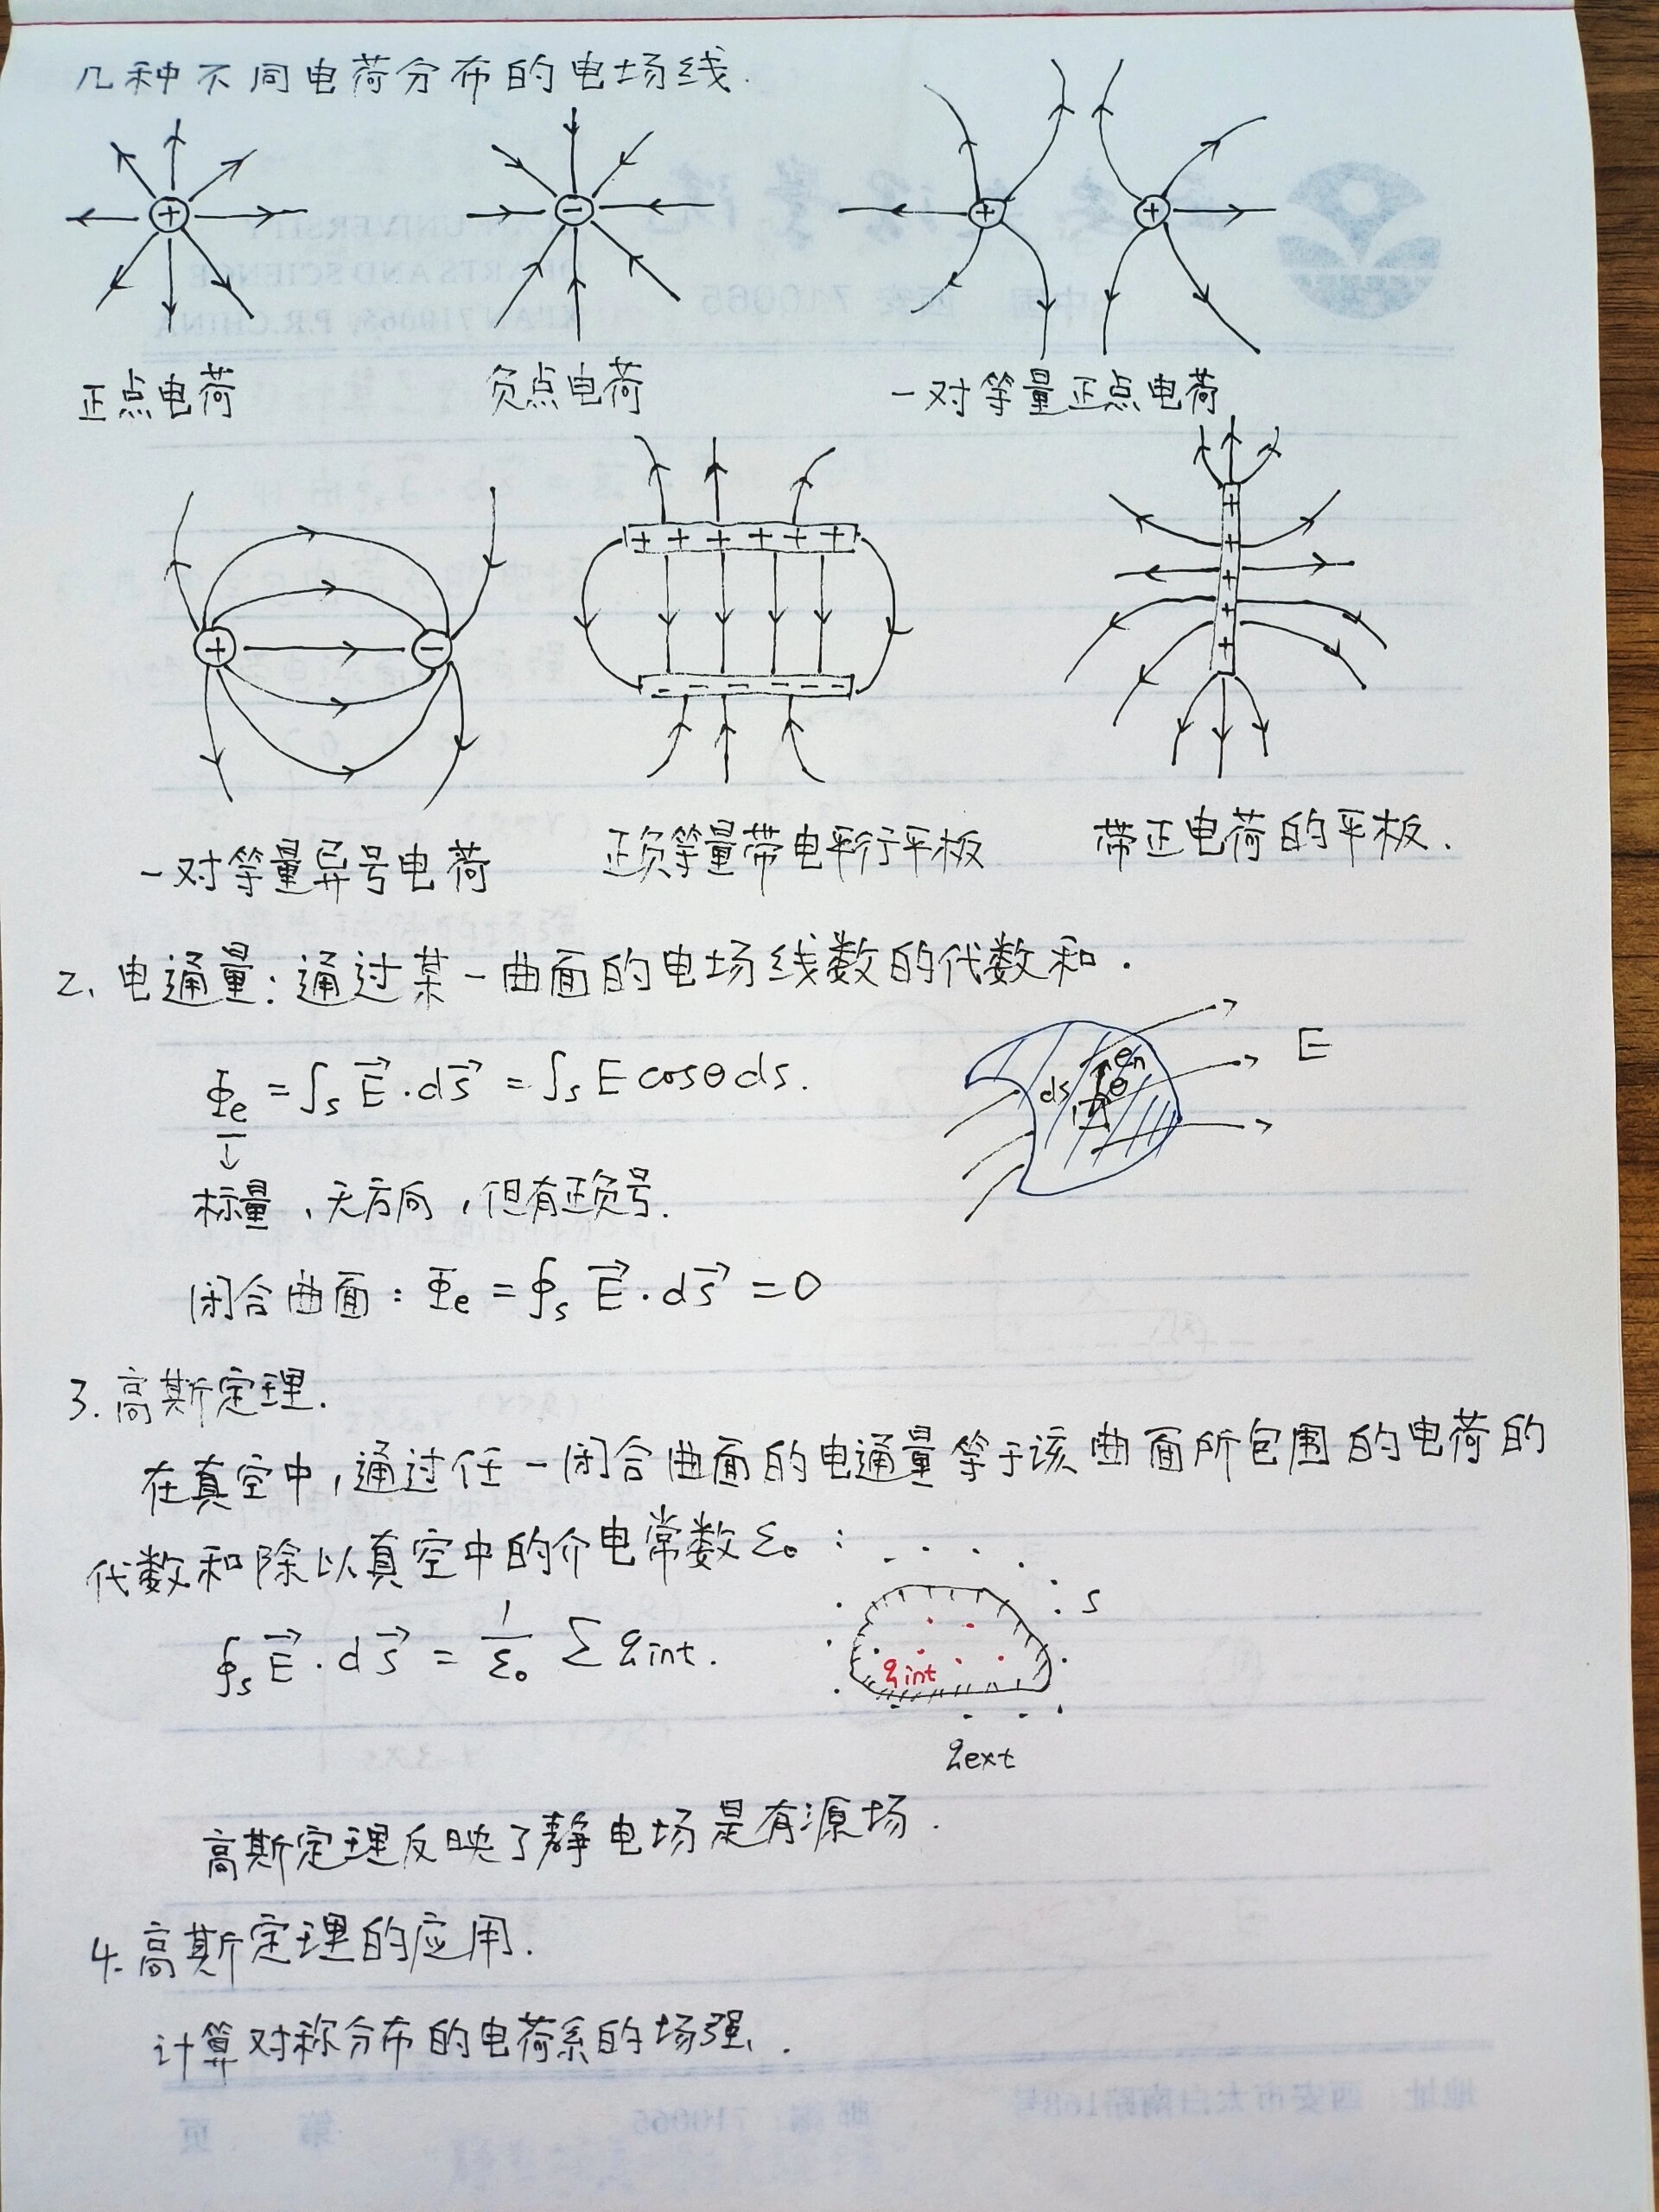 几种不同电荷分布的电场线.
+
-
+ +
正点电荷 负点电荷 一对等量正点电荷
+ -
+ + + + + +
- - - - - -
+
+
+
+
+
一对等量异号电荷 正负等量带电平行平板 带正电荷的平板.
2、电通量:通过某一曲面的电场线数的代数和.
Φe = ∫s E⃗ · ds⃗ = ∫s E cosθ ds.
↓
E
en
ds θ
标量,无方向,但有正负号.
闭合曲面: Φe = ∮s E⃗ · ds⃗ = 0
3. 高斯定理.
在真空中,通过任一闭合曲面的电通量等于该曲面所包围的电荷的
代数和除以真空中的介电常数ε₀:
∮s E⃗ · ds⃗ = 1/ε₀ Σ qint.
s
qint
qext
高斯定理反映了静电场是有源场.
4. 高斯定理的应用.
计算对称分布的电荷系的场强.